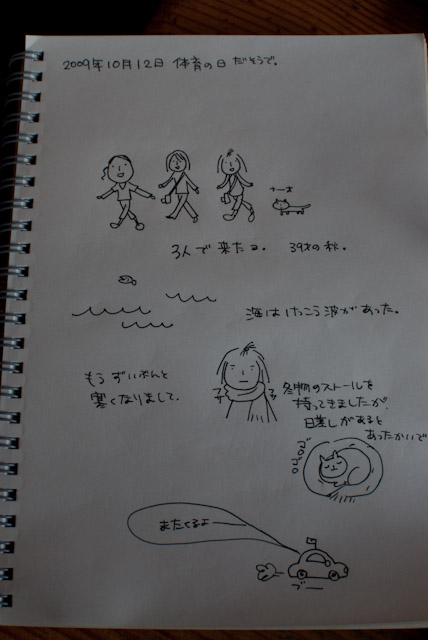 2009年10月12日 体育の日 だそうで。
3人で来たよ。 39才の秋。
海はけっこう波があった。
もう ずいぶんと
寒くなりまして、
冬物のストールを
持ってきましたが、
日差しがあると
あったかいで
またくるよ